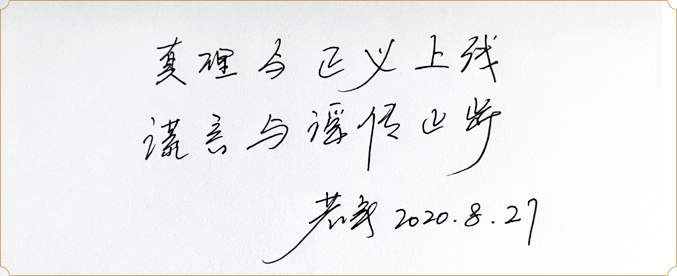 真理与正义上线
谎言与谣传止步
若 2020.8.27